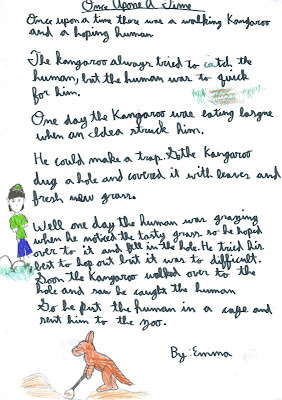 Once Upon A Time
Once upon a time there was a walking Kangaroo
and a hoping human
The Kangaroo always tried to catch the
human, but the human was to quick
for him.
One day the Kangaroo was eating largne
when an Idea struck him.
He could make a trap. So the Kangaroo
dug a hole and covered it with leaves and
fresh new grass.
Well one day the human was grazing
when he noticed the tasty grass so he hoped
over to it and fell in the hole. He tried his
best to hop out but it was to difficult.
Soon the Kangaroo walked over to the
hole and saw he caught the human
So he put the human in a cage and
sent him to the zoo.
By: Emma